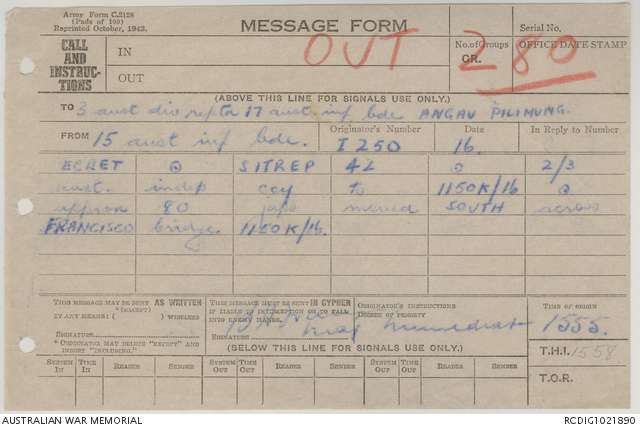 Army Form C.2128
(Pads of 100)
Reprinted October, 1942.
MESSAGE FORM
Serial No.
CALL AND INSTRUC-TIONS
IN
OUT
OUT
No. of Groups
GR.
280
OFFICE DATE STAMP
(ABOVE THIS LINE FOR SIGNALS USE ONLY.)
TO 3 aust div reptd 17 aust inf bde ANGAU PILIMUNG
FROM 15 aust inf bde.
Originator's Number
I 250
Date
16.
In Reply to Number
ECRET @ SITREP 42 @ 2/3
aust. indep coy to 1150K/16 @
approx 80 japs moved SOUTH across
FRANCISCO bridge. 1150K/16.
THIS MESSAGE MAY BE SENT AS WRITTEN
(EXCEPT)
BY ANY MEANS ( ) WIRELESS
SIGNATURE
* ORIGINATOR MAY DELETE "EXCEPT" AND
INSERT "INCLUDING."
THIS MESSAGE MUST BE SENT IN CYPHER
IF LIABLE TO INTERCEPTION OR TO FALL
INTO ENEMY HANDS.
SIGNATURE
Maj
ORIGINATOR'S INSTRUCTIONS
DEGREE OF PRIORITY
TIME OF ORIGIN
1555.
(BELOW THIS LINE FOR SIGNALS USE ONLY.)
T.H.I. 1558
SYSTEM IN
TIME IN
READER
SENDER
SYSTEM OUT
TIME OUT
READER
SENDER
SYSTEM OUT
TIME OUT
READER
SENDER
T.O.R.
AUSTRALIAN WAR MEMORIAL
RCDIG1021890